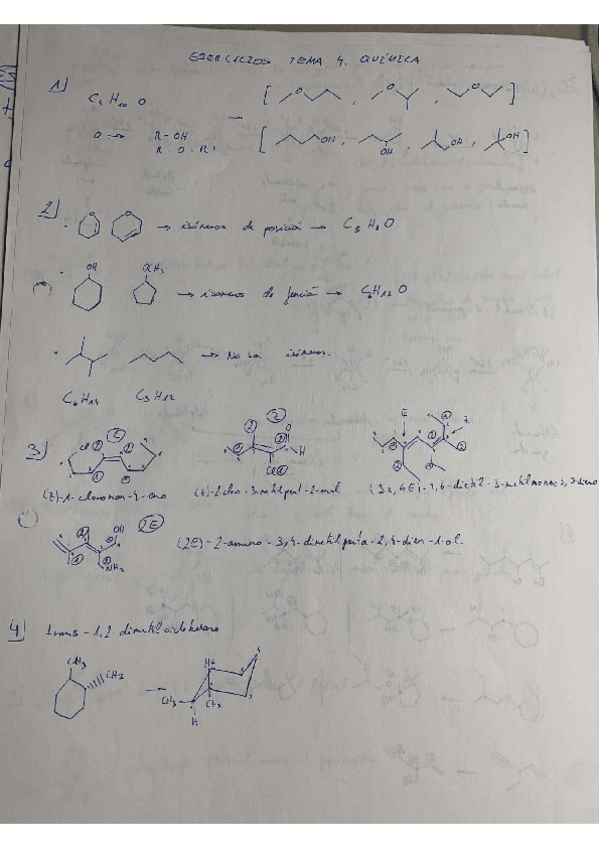 EJERCICIOS TEMA 4. QUÍMICA
1) C4 H10 O
O → R - OH
R - O - R'
OH, OH, OH, OH
2) → isómeros de posición → C5 H8 O
OH OCH3
→ isomeros de función → C6H12 O
→ No son isómeros.
C6H14 C5H12
3)
(Z)-1-cloronon-4-eno (Z)-2-cloro-3-metilpent-2-enal
OH 2E
NH2
(2E)-2-amino-3,4-dimetilpenta-2,4-dien-1-ol.
4) trans-1,2-dimetilciclohexano
CH3
CH3 → CH3
H CH3